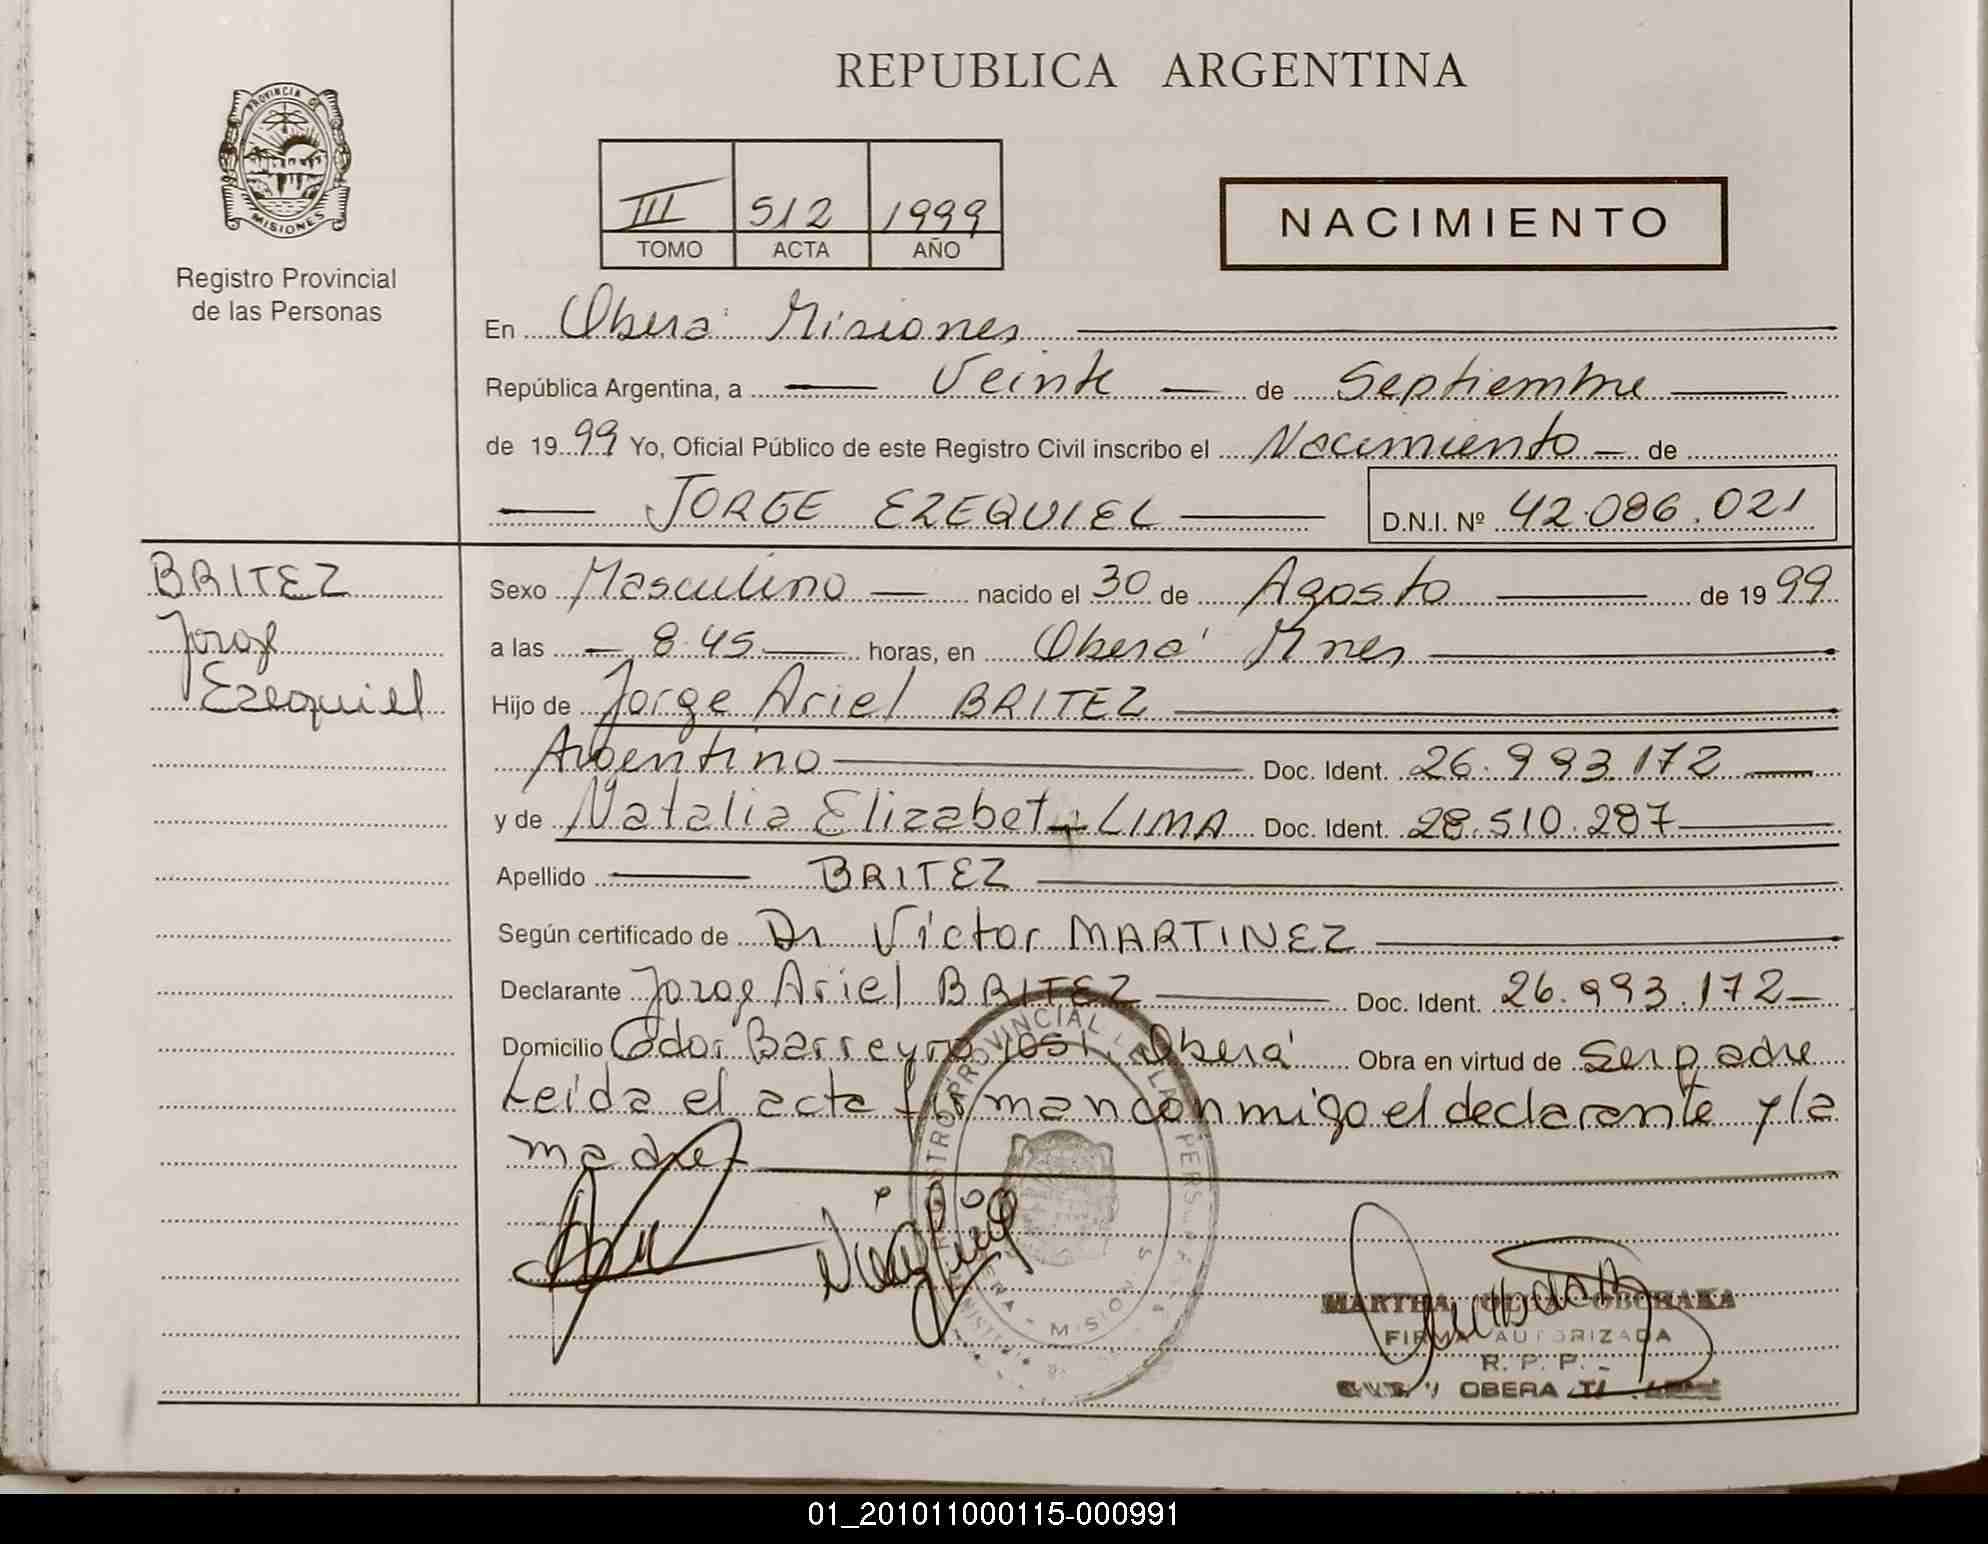 REPUBLICA ARGENTINA
PROVINCIA DE
MISIONES
Registro Provincial
de las Personas
III 512 1999
TOMO ACTA AÑO
NACIMIENTO
En Oberá Misiones
República Argentina, a Veinte de Septiembre
de 1999 Yo, Oficial Público de este Registro Civil inscribo el Nacimiento de
JORGE EZEQUIEL D.N.I. Nº 42.086.021
BRITEZ
Jorge
Ezequiel
Sexo Masculino nacido el 30 de Agosto de 1999
a las 8.45 horas, en Oberá Mnes
Hijo de Jorge Ariel BRITEZ
Argentino Doc. Ident. 26.993.172
y de Natalia Elizabet LIMA Doc. Ident. 28.510.287
Apellido BRITEZ
Según certificado de Dr Víctor MARTINEZ
Declarante Jorge Ariel BRITEZ Doc. Ident. 26.993.172
Domicilio Cdor Barreyro 1051 Oberá Obra en virtud de Ser padre
Leida el acta firman conmigo el declarante y la
madre
REGISTRO PROVINCIAL DE LAS PERSONAS
MISIONES
MARTHA
FIRMA AUTORIZADA
R. P. P.
OBERA
01_201011000115-000991